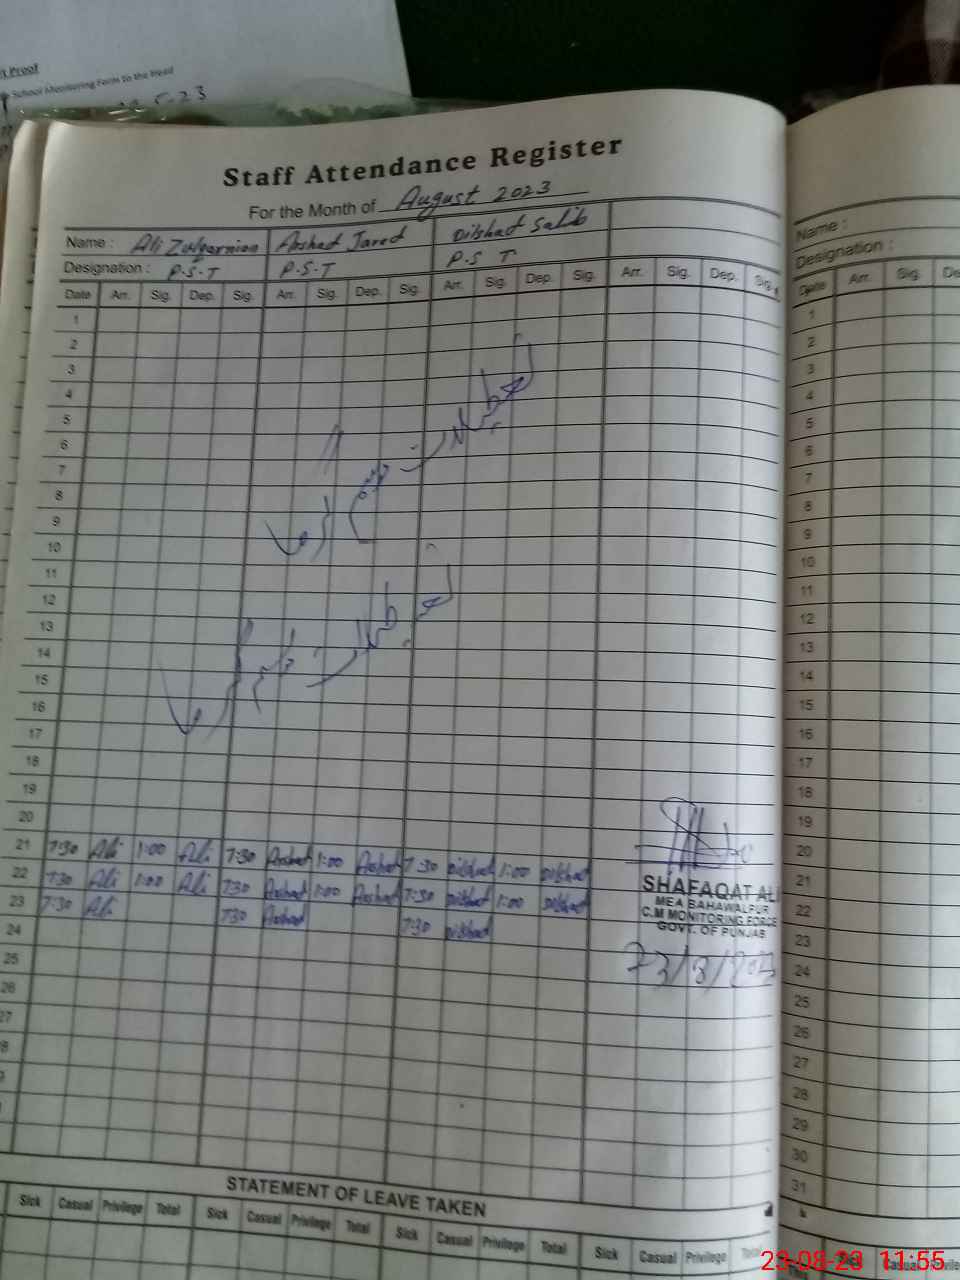 t Proof
School Monitoring Form to the Head
5-23
Staff Attendance Register
For the Month of August 2023
Name : Ali Zulqarnian Arshad Javed Dilshad Salib
Designation : P.S.T P.S.T P.S T
Date Arr. Sig. Dep. Sig. Arr. Sig. Dep. Sig. Arr. Sig. Dep. Sig. Arr. Sig. Dep. Sig.
1
2
3
4
5
6
7
8
9
10
11
12
13
14
15
16
17
18
19
20
21 7:30 Ali 1:00 Ali 7:30 Arshad 1:00 Arshad 7:30 Dilshad 1:00 Dilshad
22 7:30 Ali 1:00 Ali 7:30 Arshad 1:00 Arshad 7:30 Dilshad 1:00 Dilshad
23 7:30 Ali 7:30 Arshad 7:30 Dilshad
24
25
26
27
8
تعطیلات موسم گرما
تعطیلات موسم گرما
SHAFAQAT ALI
MEA BAHAWALPUR
C.M MONITORING FORCE
GOVT. OF PUNJAB
23/8/2023
STATEMENT OF LEAVE TAKEN
Sick Casual Privilege Total Sick Casual Privilege Total Sick Casual Privilege Total Sick Casual Privilege
Name :
Designation :
Date Arr. Sig. De
1
2
3
4
5
6
7
8
9
10
11
12
13
14
15
16
17
18
19
20
21
22
23
24
25
26
27
28
29
30
31
Sick Casual Privile
23-08-23 11:55